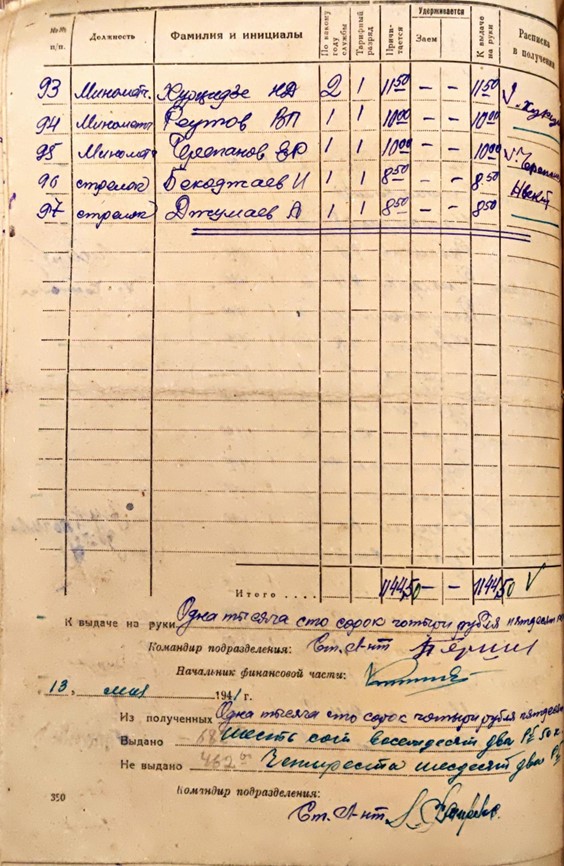 №№ п/п. Должность Фамилия и инициалы По какому году службы Тарифный разряд Причитается Удерживается Заем К выдаче на руки Расписка в получении
93 Миномётч. НД 2 1 11 50 — — 11 50
94 Миномётч Реутов ВП 1 1 10 00 — — 10 00
95 Миномётч Черепанов 1 1 10 00 — — 10 00
96 стрелок Бекоджаев И 1 1 8 50 — — 8 50
97 стрелок Джумаев А 1 1 8 50 — — 8 50
Итого .... 1144,50 — — 1144,50 V
К выдаче на руки Одна тысяча сто сорок четыри рубля пятдесят
Командир подразделения: Ст. Л-нт
Начальник финансовой части:
13, мая 1941 г.
Из полученных Одна тысяча сто сорок четыри рубля пятдесят
Выдано Шесть сот восемдесят два Р. 50 к.
Не выдано 462 00 Четыреста шесдесят два Р
350 Командир подразделения:
Ст. Л-нт